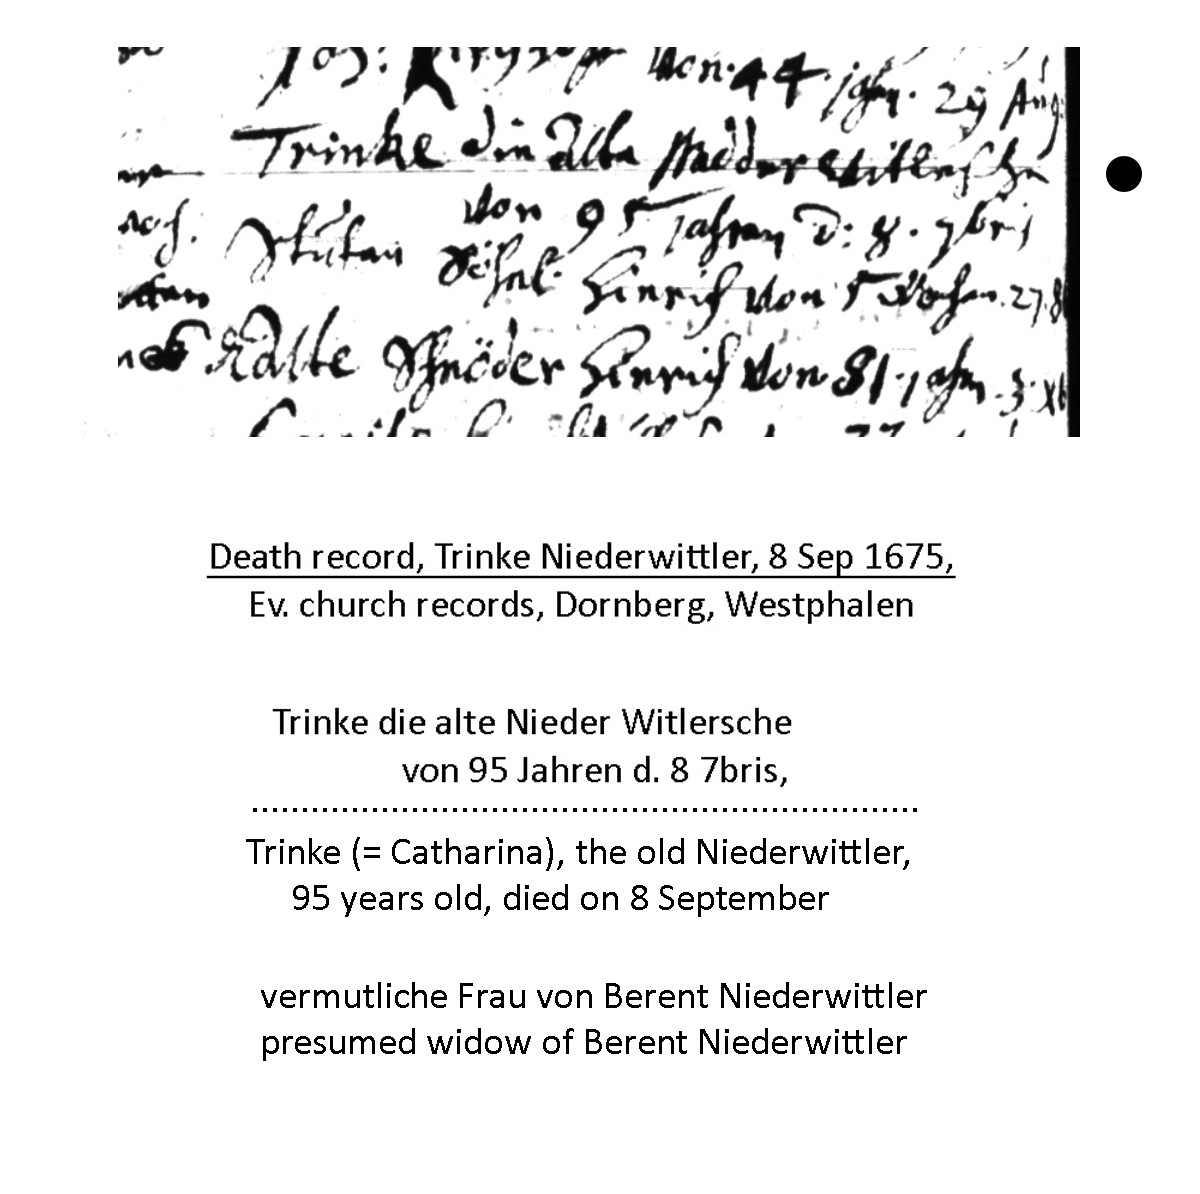 Joh: von 44 jahr. 29 Aug
Trinke die alte Nidder Witlersche
von 95 Jahren d: 8. 7bris
Söhnl. Hinrich von 5 Wochen. 27. 8
Alte Schnöder Hinrich von 81 jahr. 3. Xb
Death record, Trinke Niederwittler, 8 Sep 1675,
Ev. church records, Dornberg, Westphalen
Trinke die alte Nieder Witlersche
von 95 Jahren d. 8 7bris,
Trinke (= Catharina), the old Niederwittler,
95 years old, died on 8 September
vermutliche Frau von Berent Niederwittler
presumed widow of Berent Niederwittler